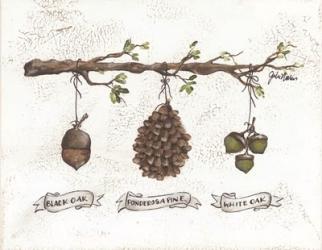 BLACK OAK
PONDEROSA PINE
WHITE OAK